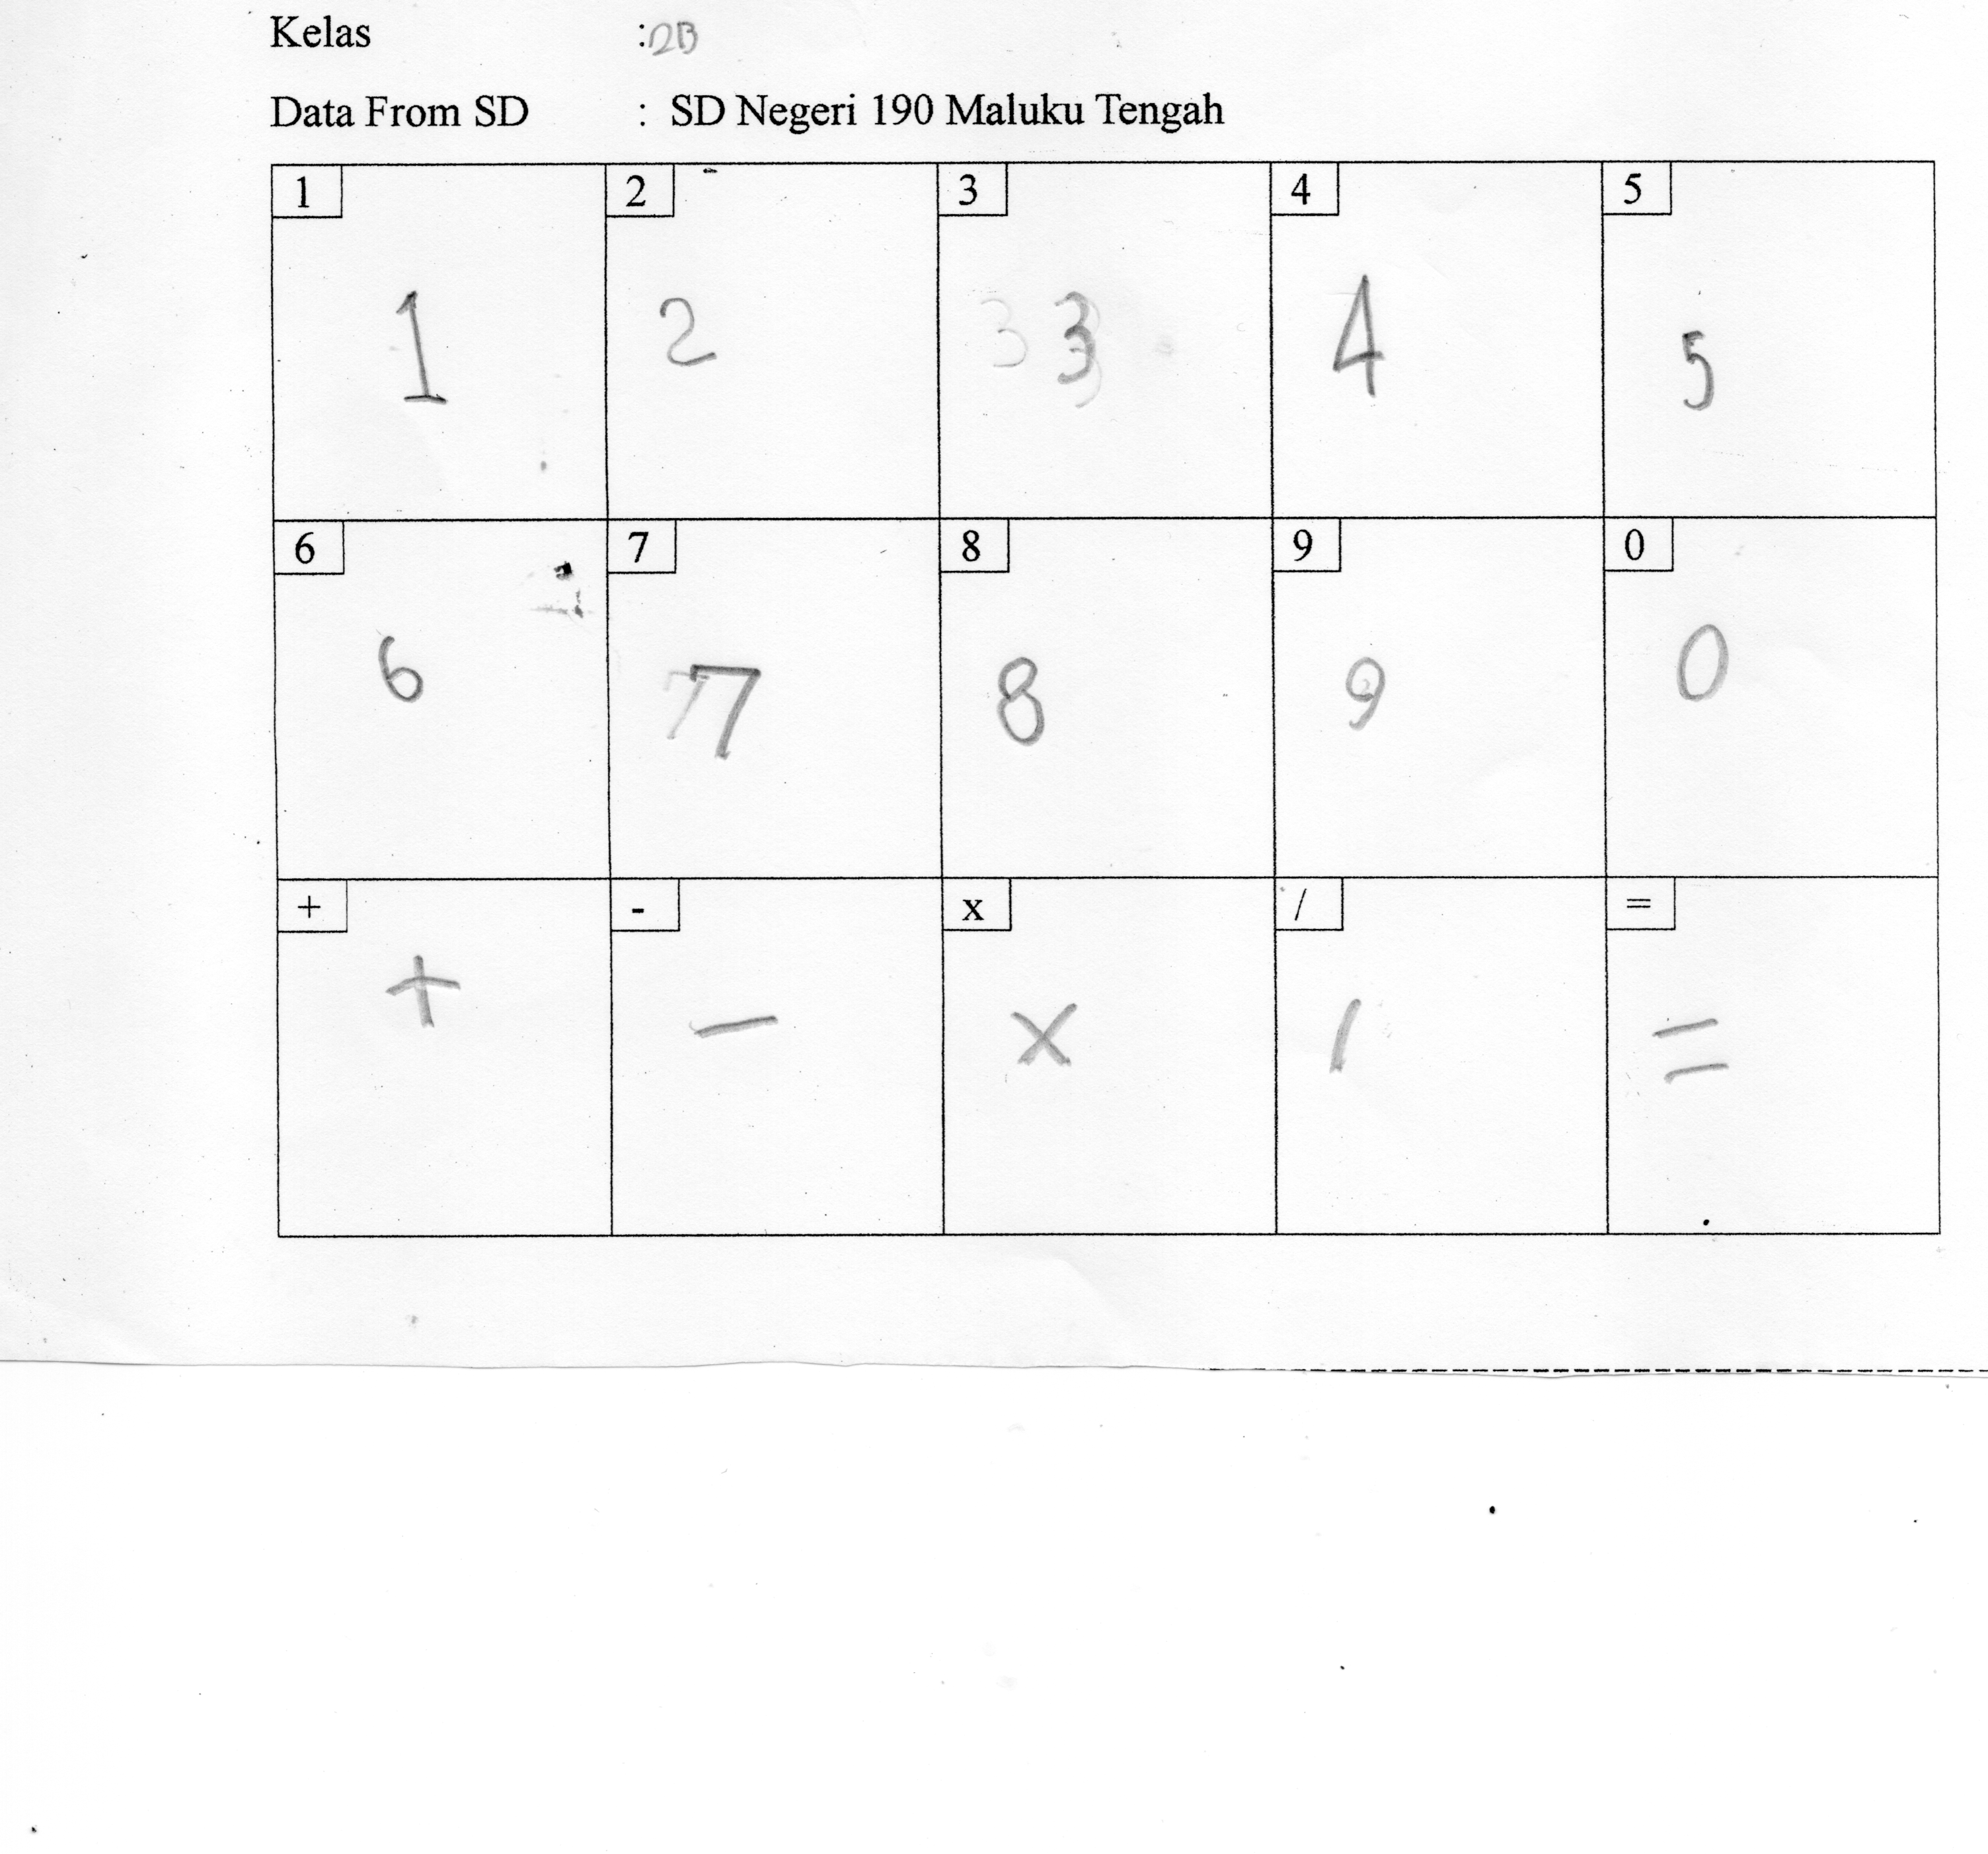 Kelas : 2B
Data From SD : SD Negeri 190 Maluku Tengah
1 2 3 4 5
1 2 3 3 4 5
6 7 8 9 0
6 7 7 8 9 0
+ - x / =
+ - x / =